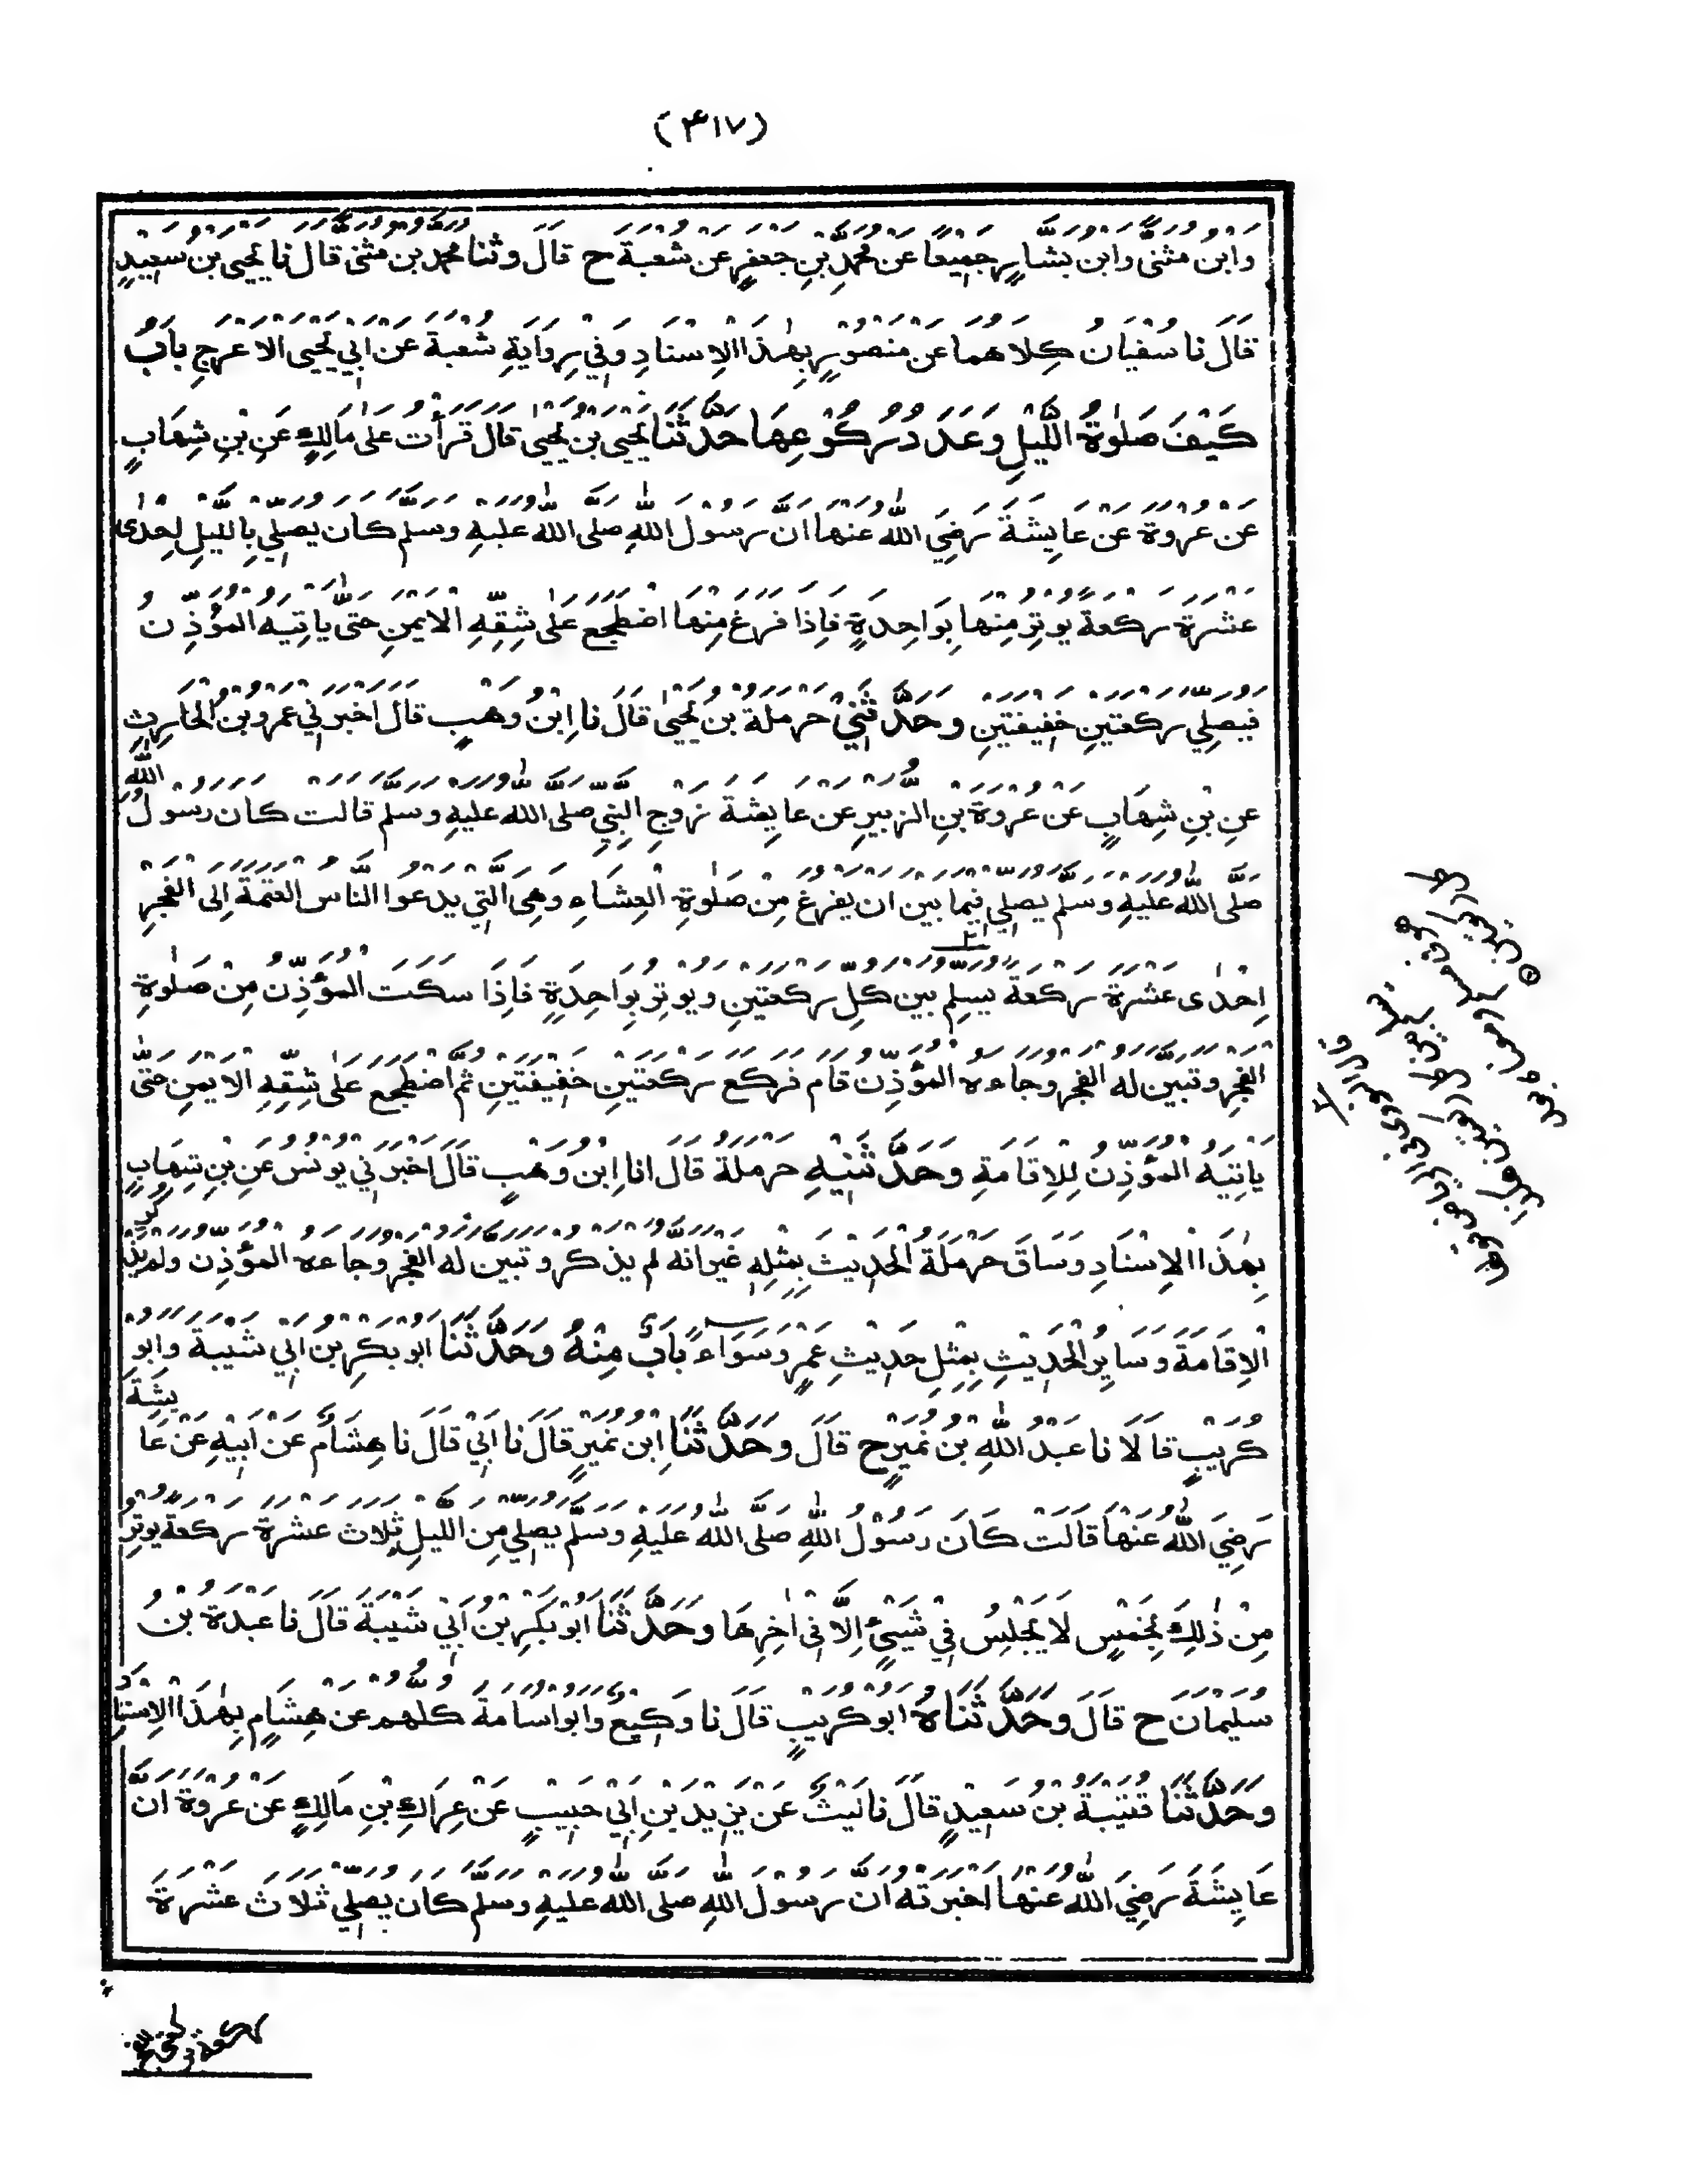 (۴۱۷)
وَابْنُ مُثَنَّى وَابْنُ بَشَّارٍ جَمِيعًا عَنْ مُحَمَّدِ بْنِ جَعْفَرٍ عَنْ شُعْبَةَ ح قَالَ وَثَنَا مُحَمَّدُ بْنُ مُثَنًّى قَالَ نَا يَحْيَى بْنُ سَعِيْدٍ
قَالَ نَا سُفْيَانُ كِلَاهُمَا عَنْ مَنْصُوْرٍ بِهٰذَا الْاِسْنَادِ وَفِيْ رِوَايَةِ شُعْبَةَ عَنْ اَبِيْ يَحْيَى الْاَعْرَجِ بَابُ
كَيْفَ صَلٰوةُ اللَّيْلِ وَعَدَدُ رُكُوْعِهَا حَدَّثَنَا يَحْيَى بْنُ يَحْيٰى قَالَ قَرَأْتُ عَلٰى مَالِكٍ عَنِ بْنِ شِهَابٍ
عَنْ عُرْوَةَ عَنْ عَايِشَةَ رَضِيَ اللّٰهُ عَنْهَا اَنَّ رَسُوْلَ اللّٰهِ صَلَّى اللّٰهُ عَلَيْهِ وَسَلَّمَ كَانَ يُصَلِّيْ بِاللَّيْلِ اِحْدٰى
عَشْرَةَ رَكْعَةً يُوْتِرُ مِنْهَا بِوَاحِدَةٍ فَاِذَا فَرَغَ مِنْهَا اضْطَجَعَ عَلٰى شِقِّهِ الْاَيْمَنِ حَتّٰى يَاتِيَهُ الْمُؤَذِّنُ
فَيُصَلِّيْ رَكْعَتَيْنِ خَفِيْفَتَيْنِ وَحَدَّثَنِيْ حَرْمَلَةُ بْنُ يَحْيٰى قَالَ نَا اِبْنُ وَهْبٍ قَالَ اَخْبَرَنِيْ عَمْرُو بْنُ الْحَارِثِ
عَنِ بْنِ شِهَابٍ عَنْ عُرْوَةَ بْنِ الزُّبَيْرِ عَنْ عَايِشَةَ زَوْجِ النَّبِيِّ صَلَّى اللّٰهُ عَلَيْهِ وَسَلَّمَ قَالَتْ كَانَ رَسُوْلُ اللّٰهِ
صَلَّى اللّٰهُ عَلَيْهِ وَسَلَّمَ يُصَلِّيْ فِيْمَا بَيْنَ اَنْ يَفْرُغَ مِنْ صَلٰوةِ الْعِشَاءِ وَهِيَ الَّتِيْ يَدْعُوا النَّاسُ الْعَتَمَةَ اِلَى الْفَجْرِ
اِحْدٰى عَشْرَةَ رَكْعَةً يُسَلِّمُ بَيْنَ كُلِّ رَكْعَتَيْنِ وَيُوْتِرُ بِوَاحِدَةٍ فَاِذَا سَكَتَ الْمُؤَذِّنُ مِنْ صَلٰوةِ
الْفَجْرِ وَتَبَيَّنَ لَهُ الْفَجْرُ وَجَاءَهُ الْمُؤَذِّنُ قَامَ فَرَكَعَ رَكْعَتَيْنِ خَفِيْفَتَيْنِ ثُمَّ اضْطَجَعَ عَلٰى شِقِّهِ الْاَيْمَنِ حَتّٰى
يَاتِيَهُ الْمُؤَذِّنُ لِلْاِقَامَةِ وَحَدَّثَنِيْهِ حَرْمَلَةُ قَالَ اَنَا اِبْنُ وَهْبٍ قَالَ اَخْبَرَنِيْ يُوْنُسُ عَنِ بْنِ شِهَابٍ
بِهٰذَا الْاِسْنَادِ وَسَاقَ حَرْمَلَةُ الْحَدِيْثَ بِمِثْلِهِ غَيْرَ اَنَّهُ لَمْ يَذْكُرْ وَتَبَيَّنَ لَهُ الْفَجْرُ وَجَاءَهُ الْمُؤَذِّنُ وَلَمْ يَذْكُرِ
الْاِقَامَةَ وَسَايِرُ الْحَدِيْثِ بِمِثْلِ حَدِيْثِ عَمْرٍو سَوَاءً بَابٌ مِنْهُ وَحَدَّثَنَا اَبُوْ بَكْرِ بْنُ اَبِيْ شَيْبَةَ وَاَبُوْ
كُرَيْبٍ قَالَا نَا عَبْدُ اللّٰهِ بْنُ نُمَيْرٍ ح قَالَ وَحَدَّثَنَا اِبْنُ نُمَيْرٍ قَالَ نَا اَبِيْ قَالَ نَا هِشَامٌ عَنْ اَبِيْهِ عَنْ عَايِشَةَ
رَضِيَ اللّٰهُ عَنْهَا قَالَتْ كَانَ رَسُوْلُ اللّٰهِ صَلَّى اللّٰهُ عَلَيْهِ وَسَلَّمَ يُصَلِّيْ مِنَ اللَّيْلِ ثَلَاثَ عَشْرَةَ رَكْعَةً يُوْتِرُ
مِنْ ذٰلِكَ بِخَمْسٍ لَا يَجْلِسُ فِيْ شَيْيءٍ اِلَّا فِيْ اٰخِرِهَا وَحَدَّثَنَا اَبُوْ بَكْرِ بْنُ اَبِيْ شَيْبَةَ قَالَ نَا عَبْدَةُ بْنُ
سُلَيْمَانَ ح قَالَ وَحَدَّثَنَاهُ اَبُوْ كُرَيْبٍ قَالَ نَا وَكِيْعٌ وَاَبُوْ اُسَامَةَ كُلُّهُمْ عَنْ هِشَامٍ بِهٰذَا الْاِسْنَادِ
وَحَدَّثَنَا قُتَيْبَةُ بْنُ سَعِيْدٍ قَالَ نَا لَيْثٌ عَنْ يَزِيْدَ بْنِ اَبِيْ حَبِيْبٍ عَنْ عِرَاكِ بْنِ مَالِكٍ عَنْ عُرْوَةَ اَنَّ
عَايِشَةَ رَضِيَ اللّٰهُ عَنْهَا اَخْبَرَتْهُ اَنَّ رَسُوْلَ اللّٰهِ صَلَّى اللّٰهُ عَلَيْهِ وَسَلَّمَ كَانَ يُصَلِّيْ ثَلَاثَ عَشْرَةَ